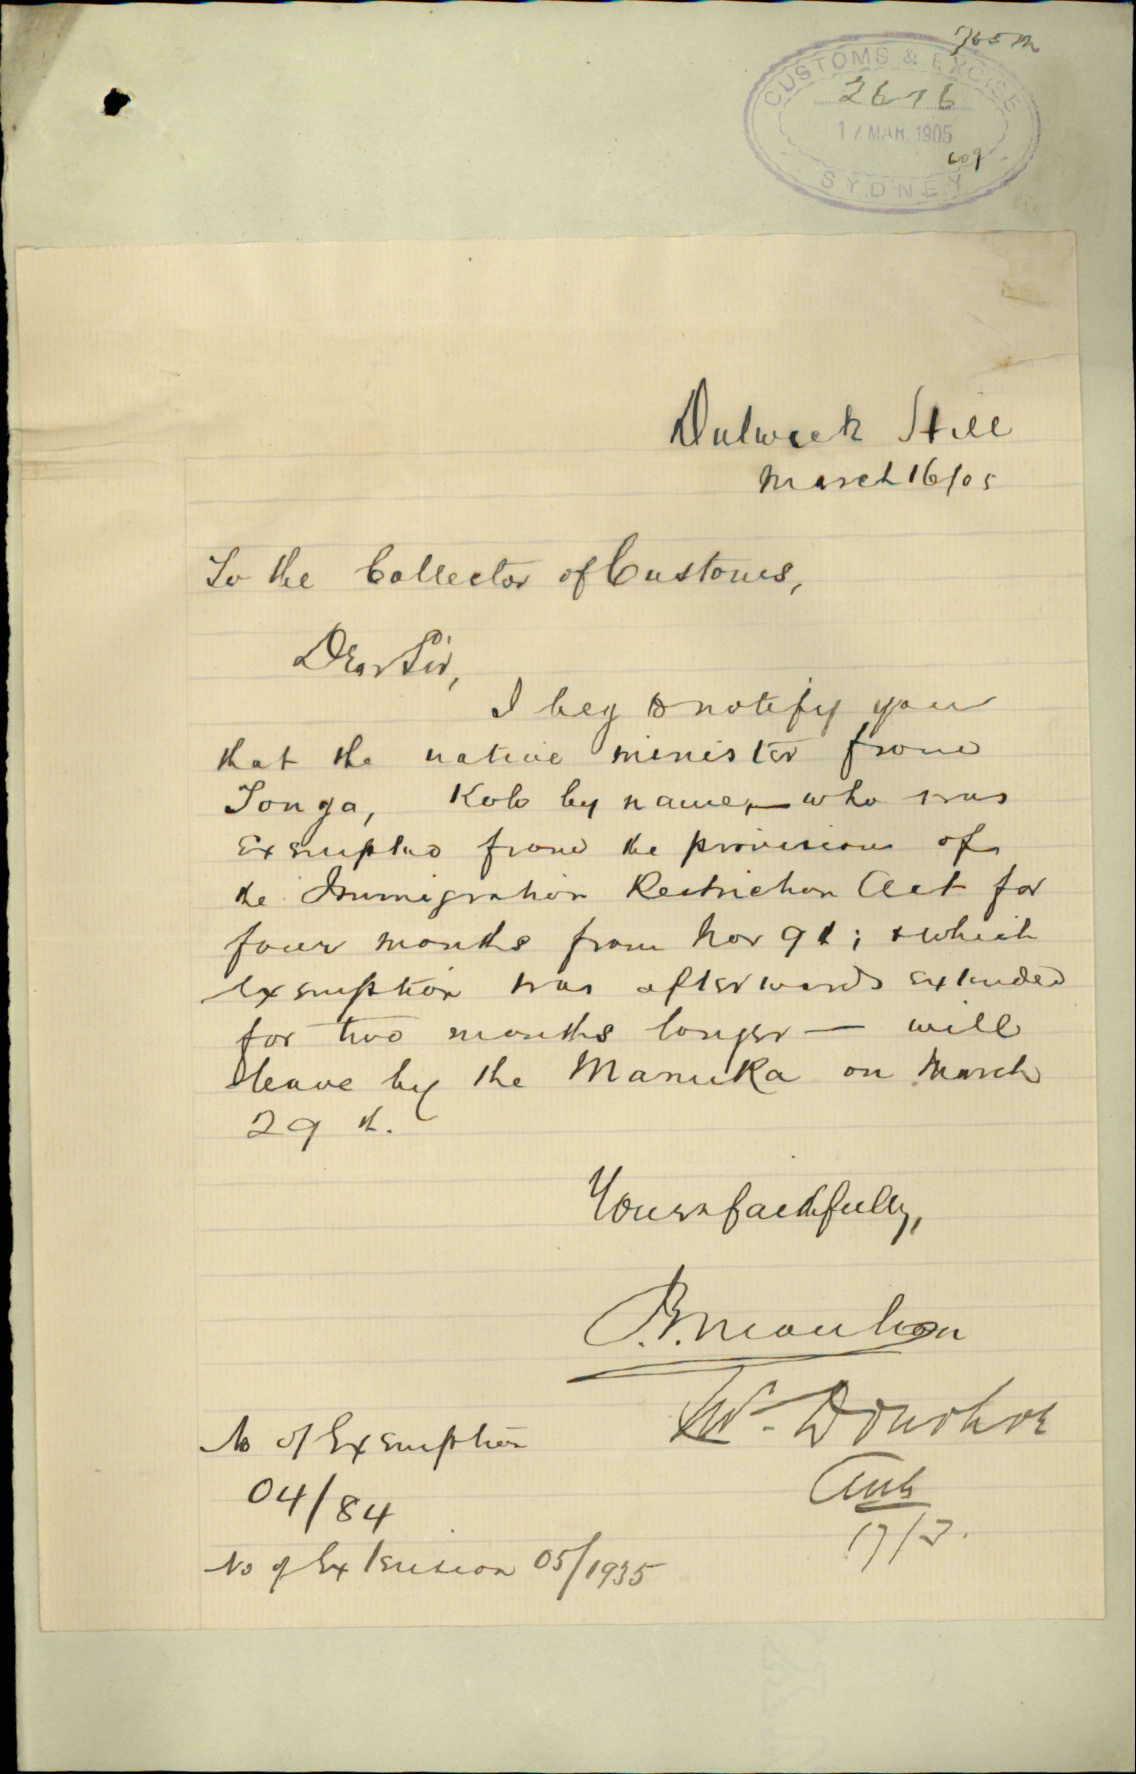 CUSTOMS & EXCISE
2676
17 MAR 1905
SYDNEY
Dulwich Hill
March 16/05
To the Collector of Customs,
Dear Sir,
I beg to notify you
that the native minister from
Tonga, Kolo by name, — who was
exempted from the provisions of
the Immigration Restriction Act for
four months from Nov 9th; & which
exemption was afterwards extended
for two months longer — will
leave by the Manuka on March
29th.
Yours faithfully,
J.E. Moulton
Mr. Donohoe
17/3.
No of Exemption
04/84
No of Extension 05/1935